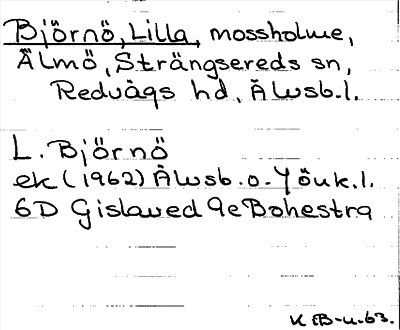 Björnö, Lilla, mossholme,
Älmö, Strängsereds sn,
Redvägs hd, Älvsb.l.
L. Björnö
ek (1962) Älvsb. o. Jönk.l.
6D Gislaved 9e Bohestra
K EB-u.63.